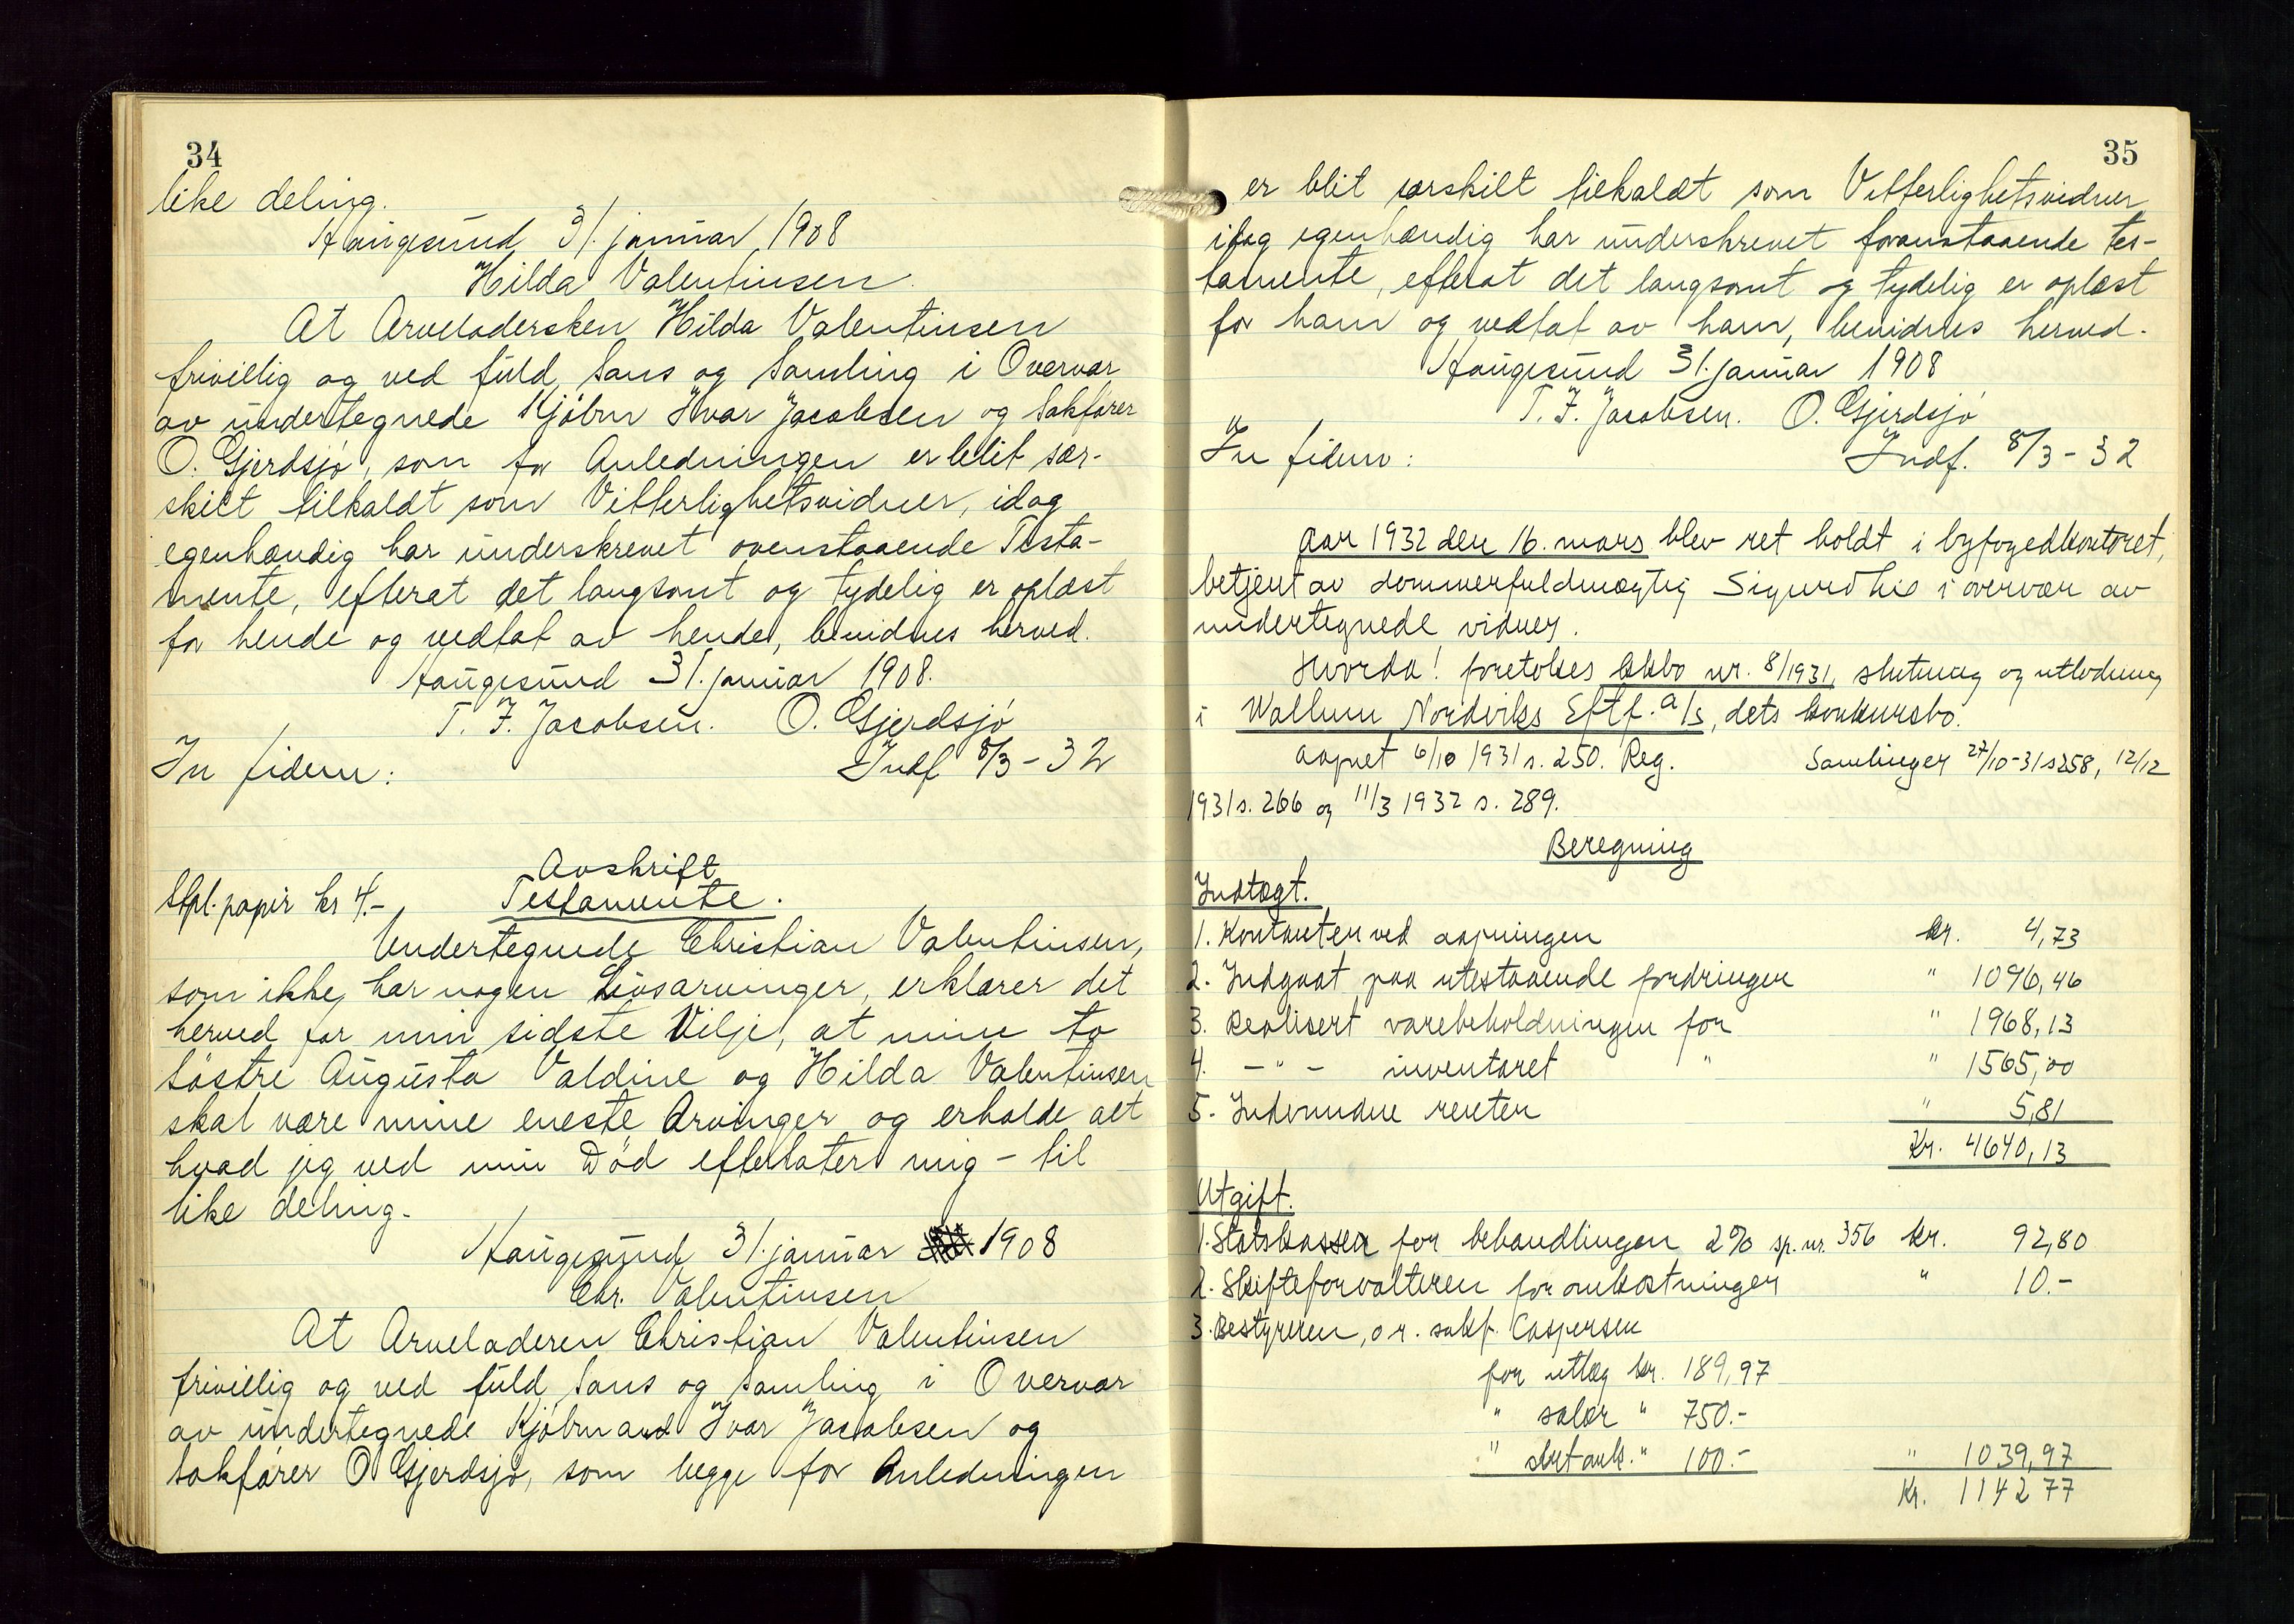 34
like deling.
Haugesund 31. januar 1908
Hilda Valentinsen.
At Arveladersken Hilda Valentinsen
frivillig og ved fuld Sans og Samling i Overvær
av undertegnede Kjøbm Ivar Jacobsen og Sakfører
O. Gjerdsjø, som for Anledningen er blit sær-
skilt tilkaldt som Vitterlighetsvidner, idag
egenhændig har underskrevet ovenstaaende Testa-
mente, efterat det langsomt og tydelig er oplæst
for hende og vedtat av hende, bevidnes herved.
Haugesund 31. januar 1908.
T. I. Jacobsen. O. Gjerdsjø
In fidem: Indf 8/3-32
Avskrift
Stpl. papir kr 4.- Testamente.
Undertegnede Christian Valentinsen,
som ikke har nogen Livsarvinger, erklærer det
herved for min sidste Vilje, at mine to
Søstre Augusta Valdine og Hilda Valentinsen
skal være mine eneste Arvinger og erholde alt
hvad jeg ved min Død efterlater mig - til
like deling.
Haugesund 31. januar 1908
Chr. Valentinsen
At Arveladeren Christian Valentinsen
frivillig og ved fuld Sans og Samling i Overvær
av undertegnede Kjøbmand Ivar Jacobsen og
Sakfører O Gjerdsjø, som begge for Anledningen
35
er blit særskilt tilkaldt som Vitterlighetsvidner
idag egenhændig har underskrevet foranstaaende Tes-
tamente, efterat det langsomt og tydelig er oplæst
for ham og vedtat av ham, bevidnes herved.
Haugesund 31. januar 1908
T. I. Jacobsen. O. Gjerdsjø
In fidem: Indf. 8/3-32
Aar 1932 den 16. mars blev ret holdt i byfogedkontoret,
betjent av dommerfuldmægtig Sigurd Lie i overvær av
undertegnede vidner.
Hvorda! foretokes kkbo nr. 8/1931, slutning og utlodning
i Wallum Nordviks Eftf. A/S, dets konkursbo.
Aapnet 6/10 1931 s. 250. Reg. Samlinger 27/10-31 s 258, 12/12
1931 s. 266 og 11/3 1932 s. 289.
Beregning
Indtægt.
1. Kontanter ved aapningen kr. 4,73
2. Indgaat paa utestaaende fordringer " 1096,46
3. Realisert varebeholdningen for " 1968,13
4. - " - inventaret " " 1565,00
5. Indvundne renter " 5,81
Kr. 4640,13
Utgift.
1. Statskassen for behandlingen 2% sp. nr. 356 kr. 92,80
2. Skifteforvalteren for omkostninger " 10.-
3. Bestyreren, o.r. sakf. Caspersen
for utlæg kr. 189,97
" salær " 750.-
" slutomk. " 100.- " 1039,97
Kr. 1142 77